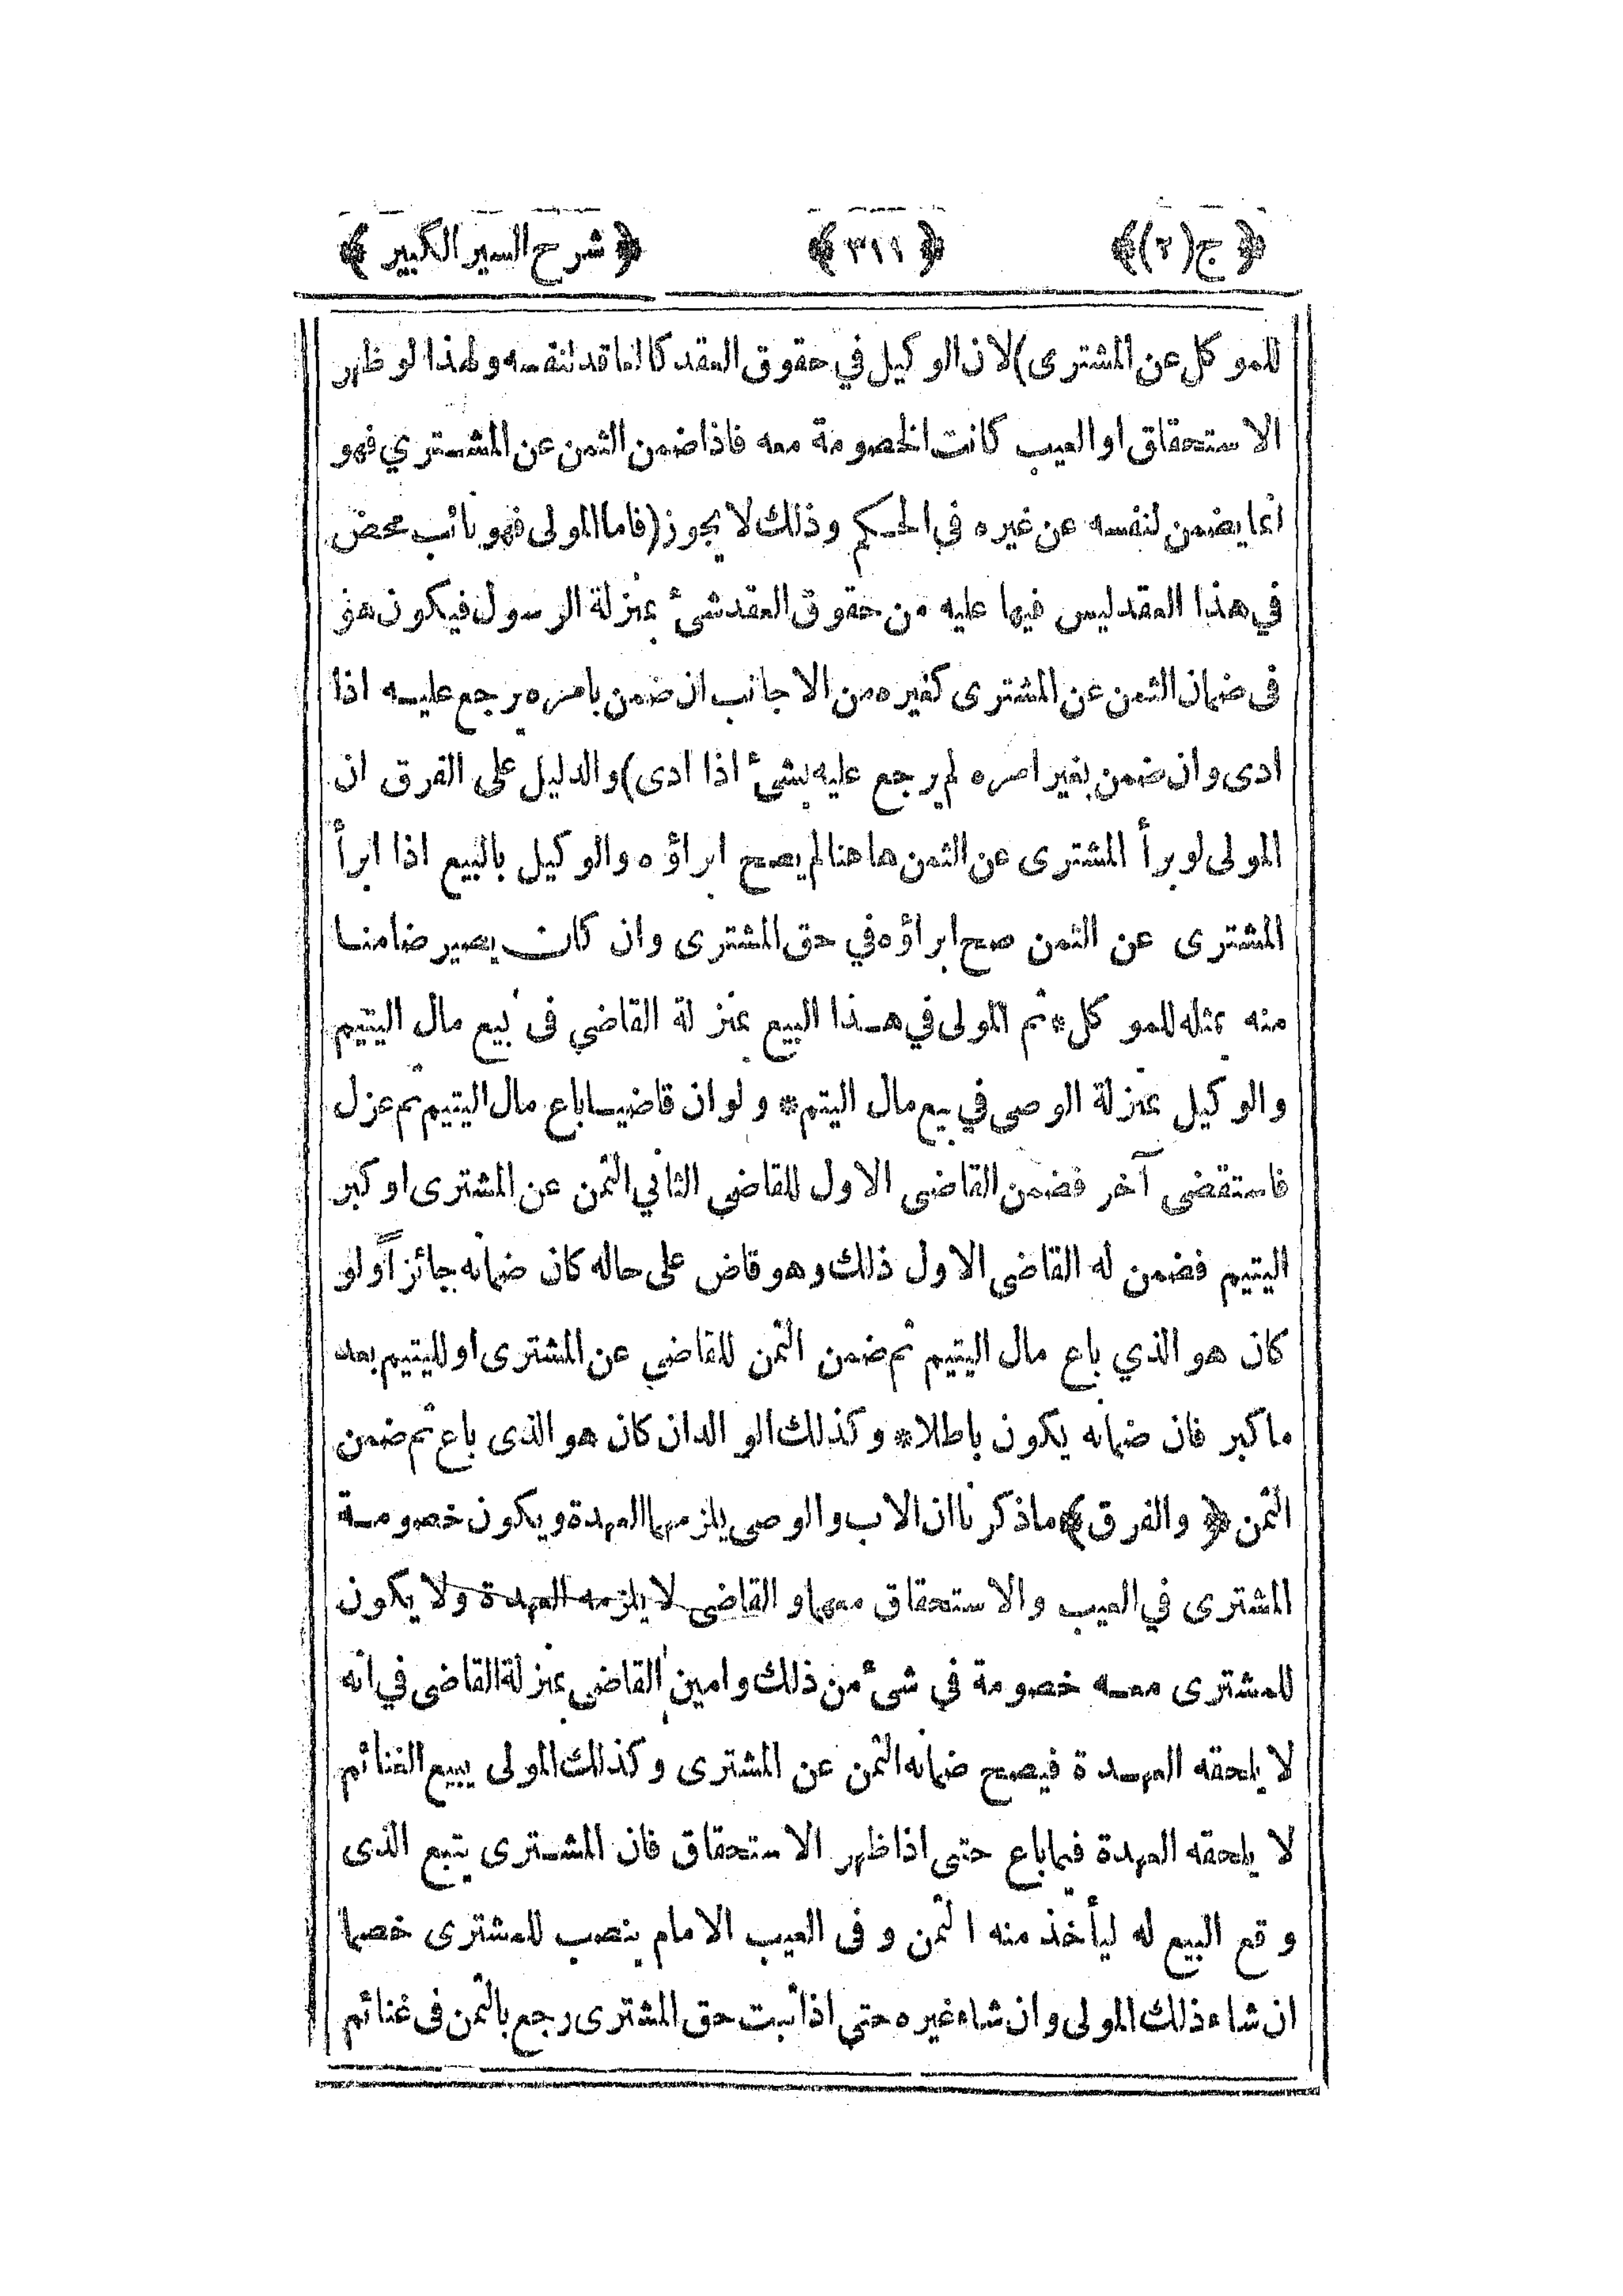 ﴿ ج(٢)﴾ ﴿ ٣١١ ﴾ ﴿ شرح السير الكبير ﴾
للموكل عن المشترى) لان الوكيل في حقوق العقد كالعاقد لنفسه ولهذا لو ظهر
الاستحقاق او العيب كانت الخصومة معه فاذا ضمن الثمن عن المشتري فهو
انما يضمن لنفسه عن غيره في الحكم وذلك لا يجوز (فاما المولى فهو نائب محض
في هذا العقد ليس فيها عليه من حقوق العقد شئ بمنزلة الرسول فيكون هو
فى ضمان الثمن عن المشترى كغيره من الاجانب ان ضمن بامره يرجع عليه اذا
ادى وان ضمن بغير امره لم يرجع عليه بشئ اذا ادى) والدليل على الفرق ان
المولى لو برأ المشترى عن الثمن هاهنا لم يصح ابراؤه والوكيل بالبيع اذا ابرأ
المشترى عن الثمن صح ابراؤه في حق المشترى وان كان يصير ضامنا
منه بمثله للموكل * ثم المولى في هذا البيع بمنزلة القاضي فى بيع مال اليتيم
والوكيل بمنزلة الوصى في بيع مال اليتم * ولو ان قاضيا باع مال اليتيم ثم عزل
فاستقضى آخر فضمن القاضى الاول للقاضي الثاني الثمن عن المشترى او كبر
اليتيم فضمن له القاضى الاول ذلك وهو قاض على حاله كان ضمانه جائزاً ولو
كان هو الذي باع مال اليتيم ثم ضمن الثمن للقاضي عن المشترى او لليتيم بعد
ما كبر فان ضمانه يكون باطلا * وكذلك الوالدان كان هو الذى باع ثم ضمن
الثمن ﴿ والفرق ﴾ ماذكرنا ان الاب والوصى يلزمهما العهدة ويكون خصومة
المشترى في العيب والاستحقاق معهما و القاضى لا يلزمه العهدة ولا يكون
للمشترى معه خصومة في شئ من ذلك وامين القاضى بمنزلة القاضى في انه
لا يلحقه العهدة فيصح ضمانه الثمن عن المشترى وكذلك المولى يبيع الغنائم
لا يلحقه العهدة فيما باع حتى اذا ظهر الاستحقاق فان المشترى يتبع الذى
وقع البيع له ليأخذ منه الثمن و فى العيب الامام ينصب للمشترى خصما
ان شاء ذلك المولى وان شاء غيره حتى اذا ثبت حق المشترى رجع بالثمن فى غنائم